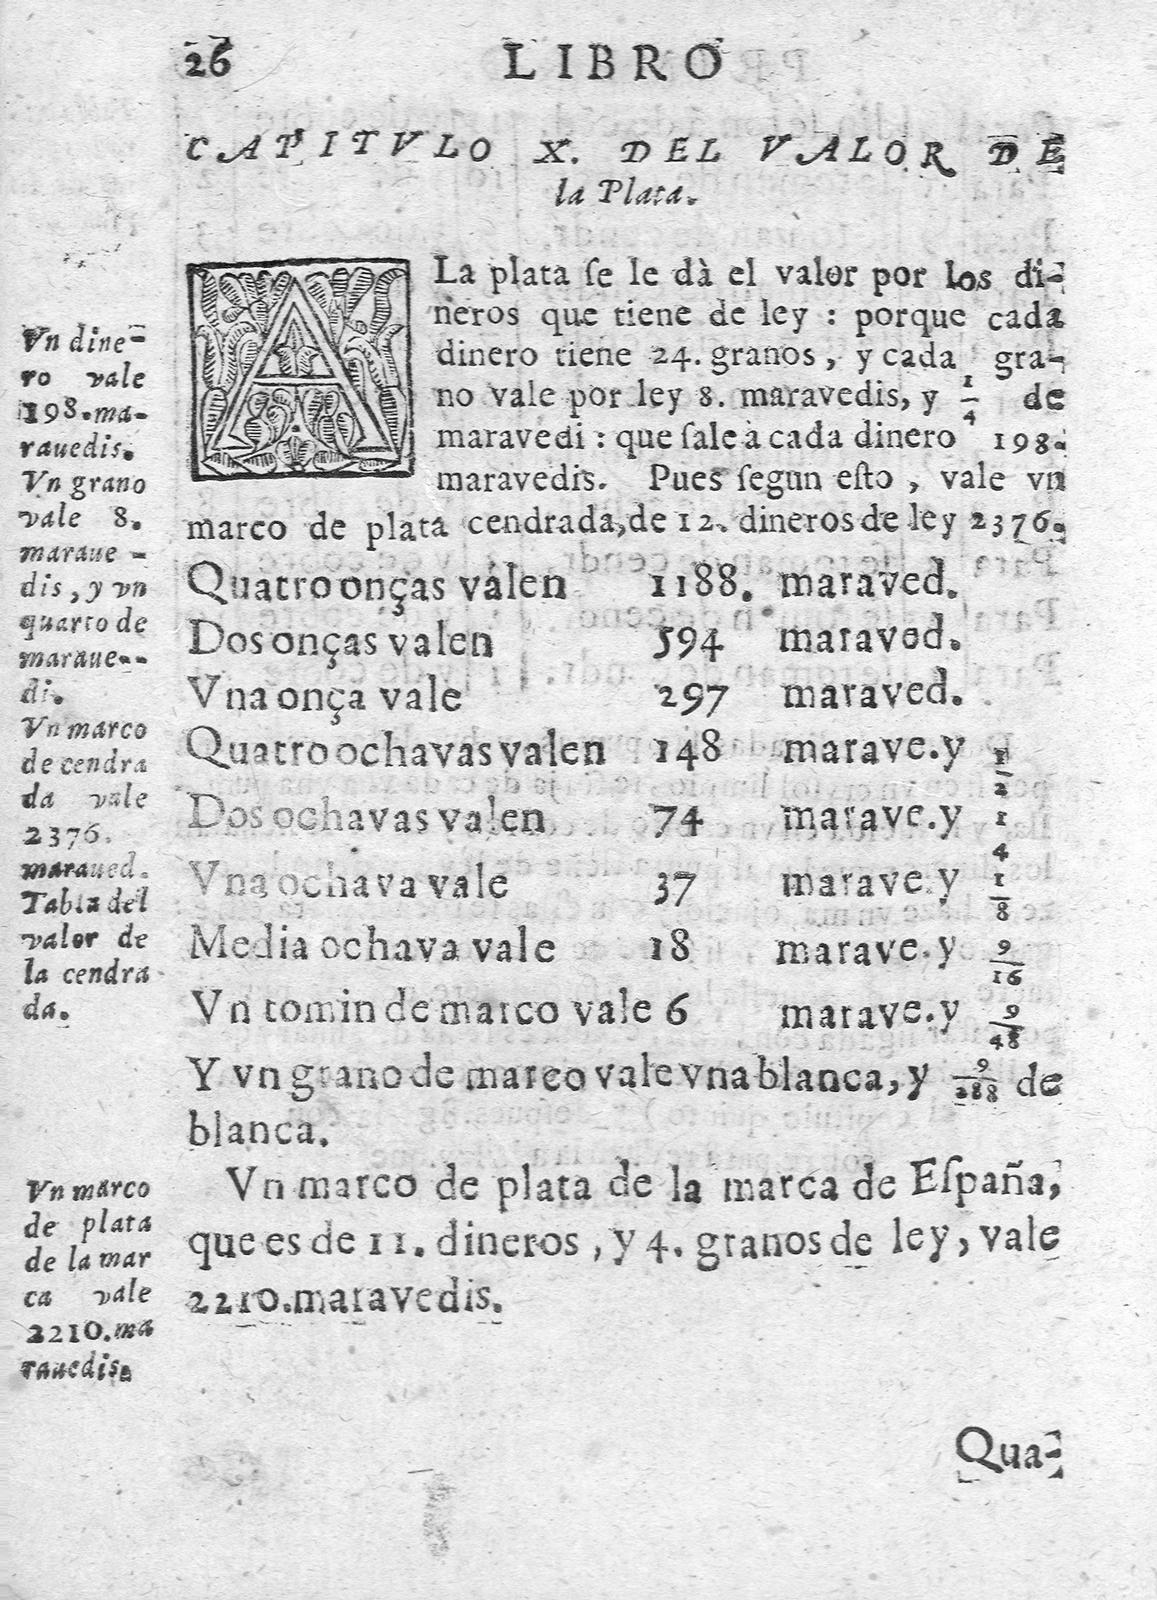 26
LIBRO
CAPITVLO X. DEL VALOR DE
la Plata.
A La plata ſe le dà el valor por los di-
neros que tiene de ley : porque cada
dinero tiene 24. granos, y cada gra-
no vale por ley 8. maravedis, y 1/4 de
maravedi : que ſale à cada dinero 198.
maravedis. Pues ſegun eſto, vale vn
marco de plata cendrada, de 12. dineros de ley 2376.
Quatro onças valen 1188. maraved.
Dos onças valen 594 maraved.
Vna onça vale 297 maraved.
Quatro ochavas valen 148 marave. y 1/2
Dos ochavas valen 74 marave. y 1/4
Vna ochava vale 37 marave. y 1/8
Media ochava vale 18 marave. y 9/16
Vn tomin de marco vale 6 marave. y 9/48
Y vn grano de marco vale vna blanca, y 9/288 de
blanca.
Vn marco de plata de la marca de Eſpaña,
que es de 11. dineros, y 4. granos de ley, vale
2210. maravedis.
Qua-
Vn dine-
ro vale
198. ma-
rauedis.
Vn grano
vale 8.
maraue-
dis, y vn
quarto de
maraue--
di.
Vn marco
de cendra
da vale
2376.
maraued.
Tabla del
valor de
la cendra
da.
Vn marco
de plata
de la mar
ca vale
2210. ma
rauedis.